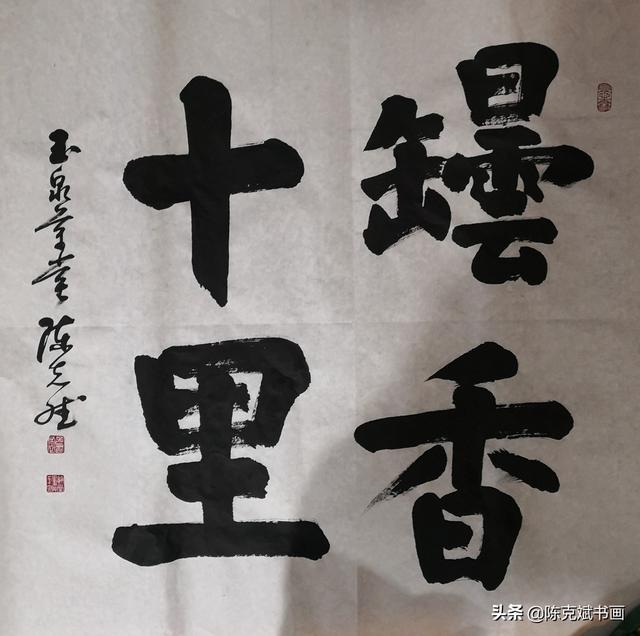 罎香
十里
玉泉草堂 陈克斌
头条 @陈克斌书画